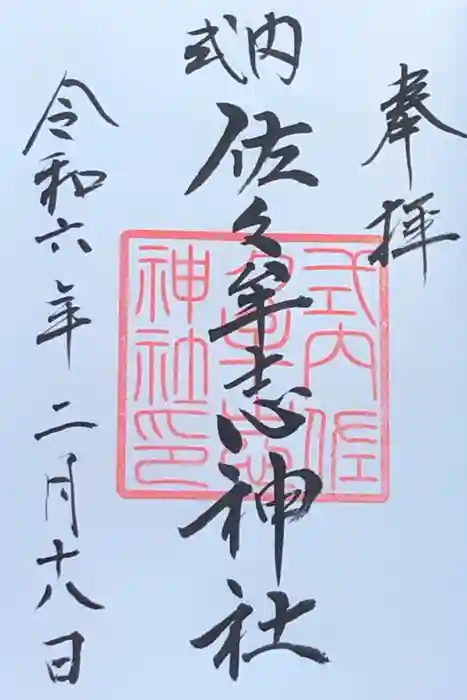 奉拝
式内
佐久牟志神社
式内佐
久牟志
神社印
令和六年二月十八日